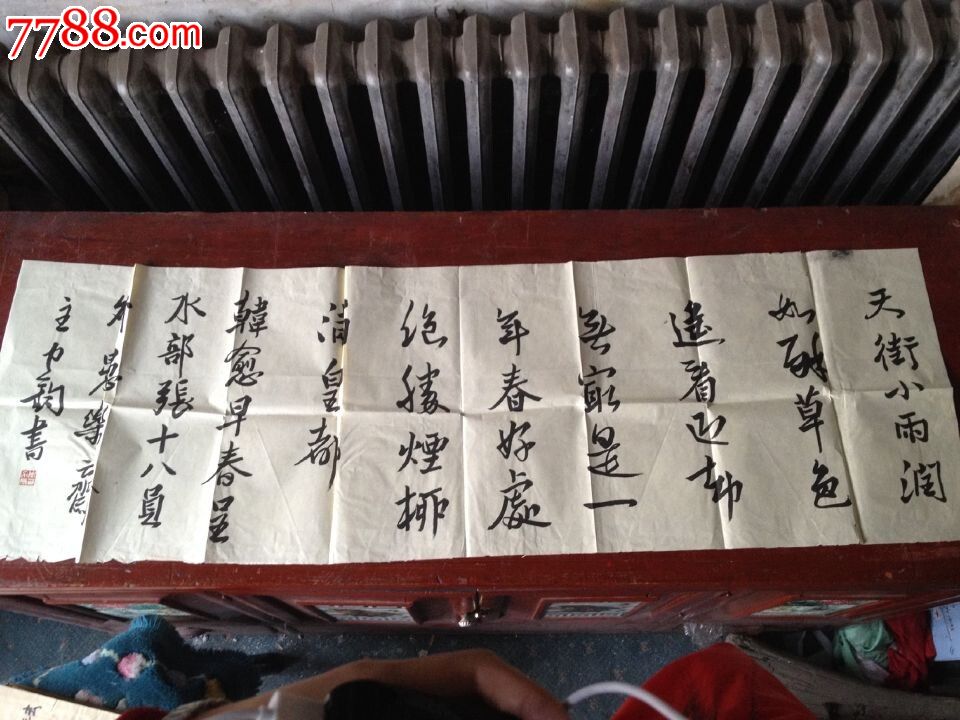 7788.com
天街小雨润
如酥草色
遙看近却
無最是一
年春好處
絶勝煙柳
满皇都
韓愈早春呈
水部張十八員
外樂云齋
主鈞書